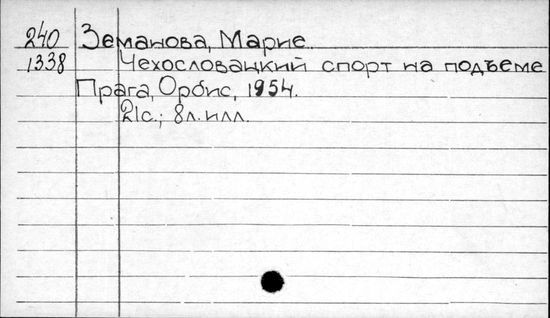 240 Земанова, Марие.
1338 Чехословацкий спорт на подъеме
Прага, Орбис, 1954.
21с.; 8л.илл.